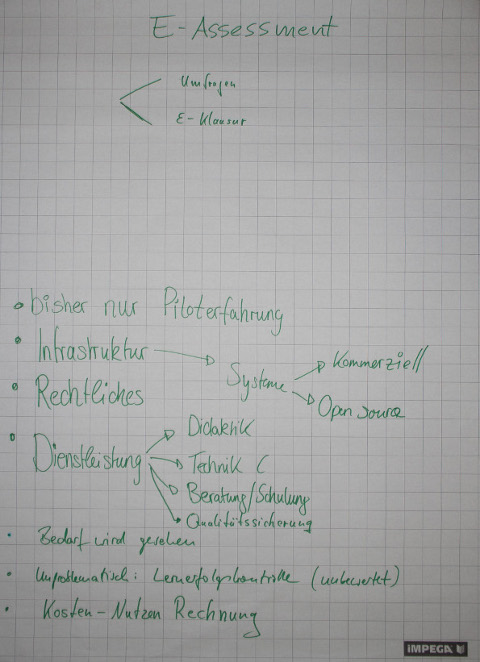 E-Assessment
Umfragen
E-Klausur
• bisher nur Piloterfahrung
• Infrastruktur
Systeme
Kommerziell
Open source
• Rechtliches
• Dienstleistung
Didaktik
Technik (
Beratung/Schulung
Qualitätssicherung
• Bedarf wird gesehen
• Unproblematisch: Lernerfolgskontrolle (unbewertet)
• Kosten-Nutzen Rechnung
IMPEGA